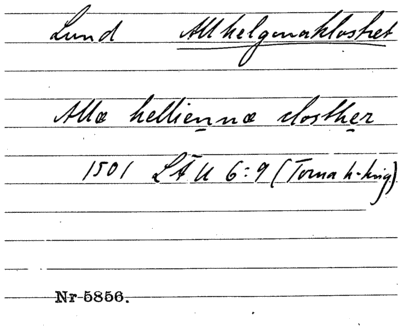 Lund Allhelgonaklostret
Allæ helliennæ closther
1501 LÄU 6:9 (Torna h-ting)
Nr 5856.